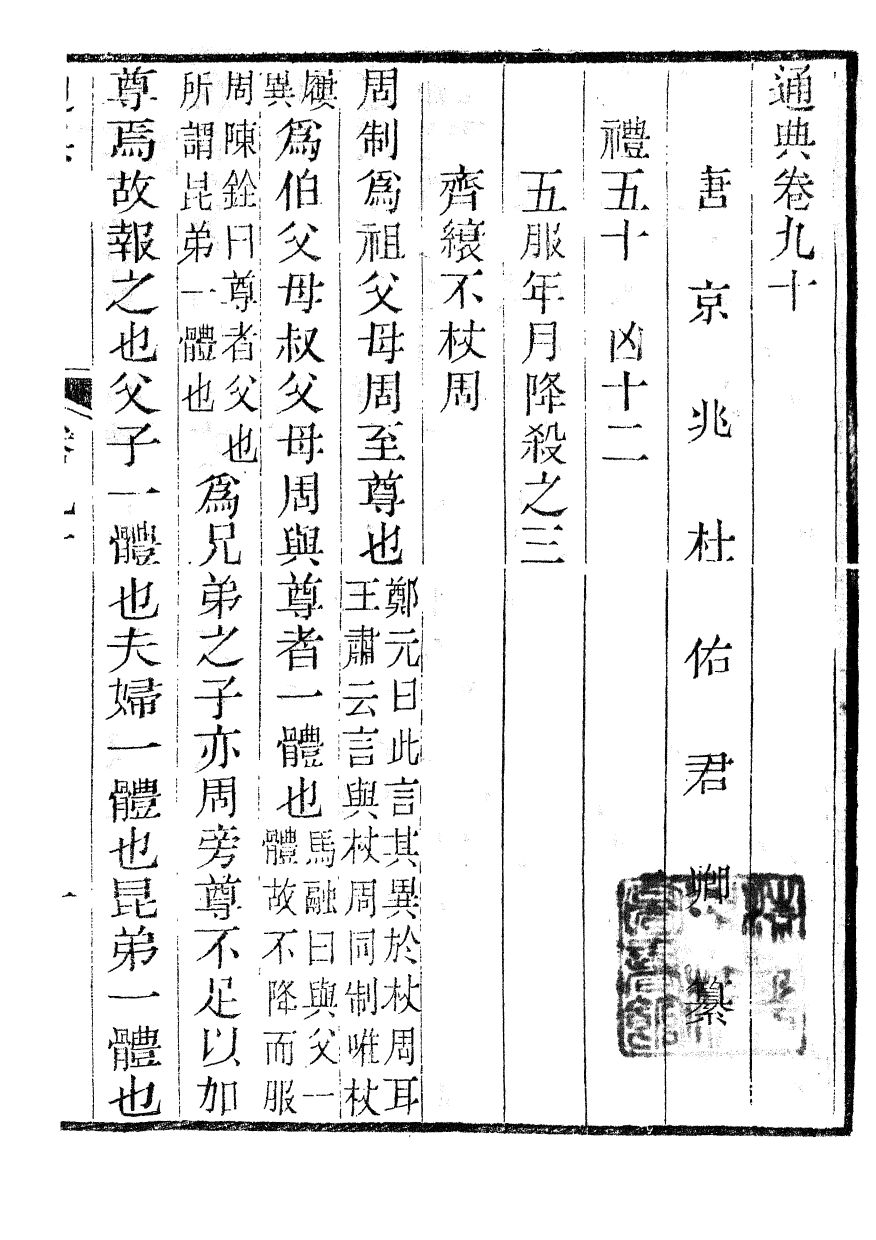 通典卷九十
唐京兆杜佑君卿纂
禮五十　凶十二
五服年月降殺之三
齊縗不杖周
周制爲祖父母周至尊也鄭元曰此言其異於杖周耳
王肅云言與杖周同制唯杖
屨
異爲伯父母叔父母周與尊者一體也馬融曰與父一
體故不降而服
周陳銓曰尊者父也
所謂昆弟一體也爲兄弟之子亦周旁尊不足以加
尊焉故報之也父子一體也夫婦一體也昆弟一體也